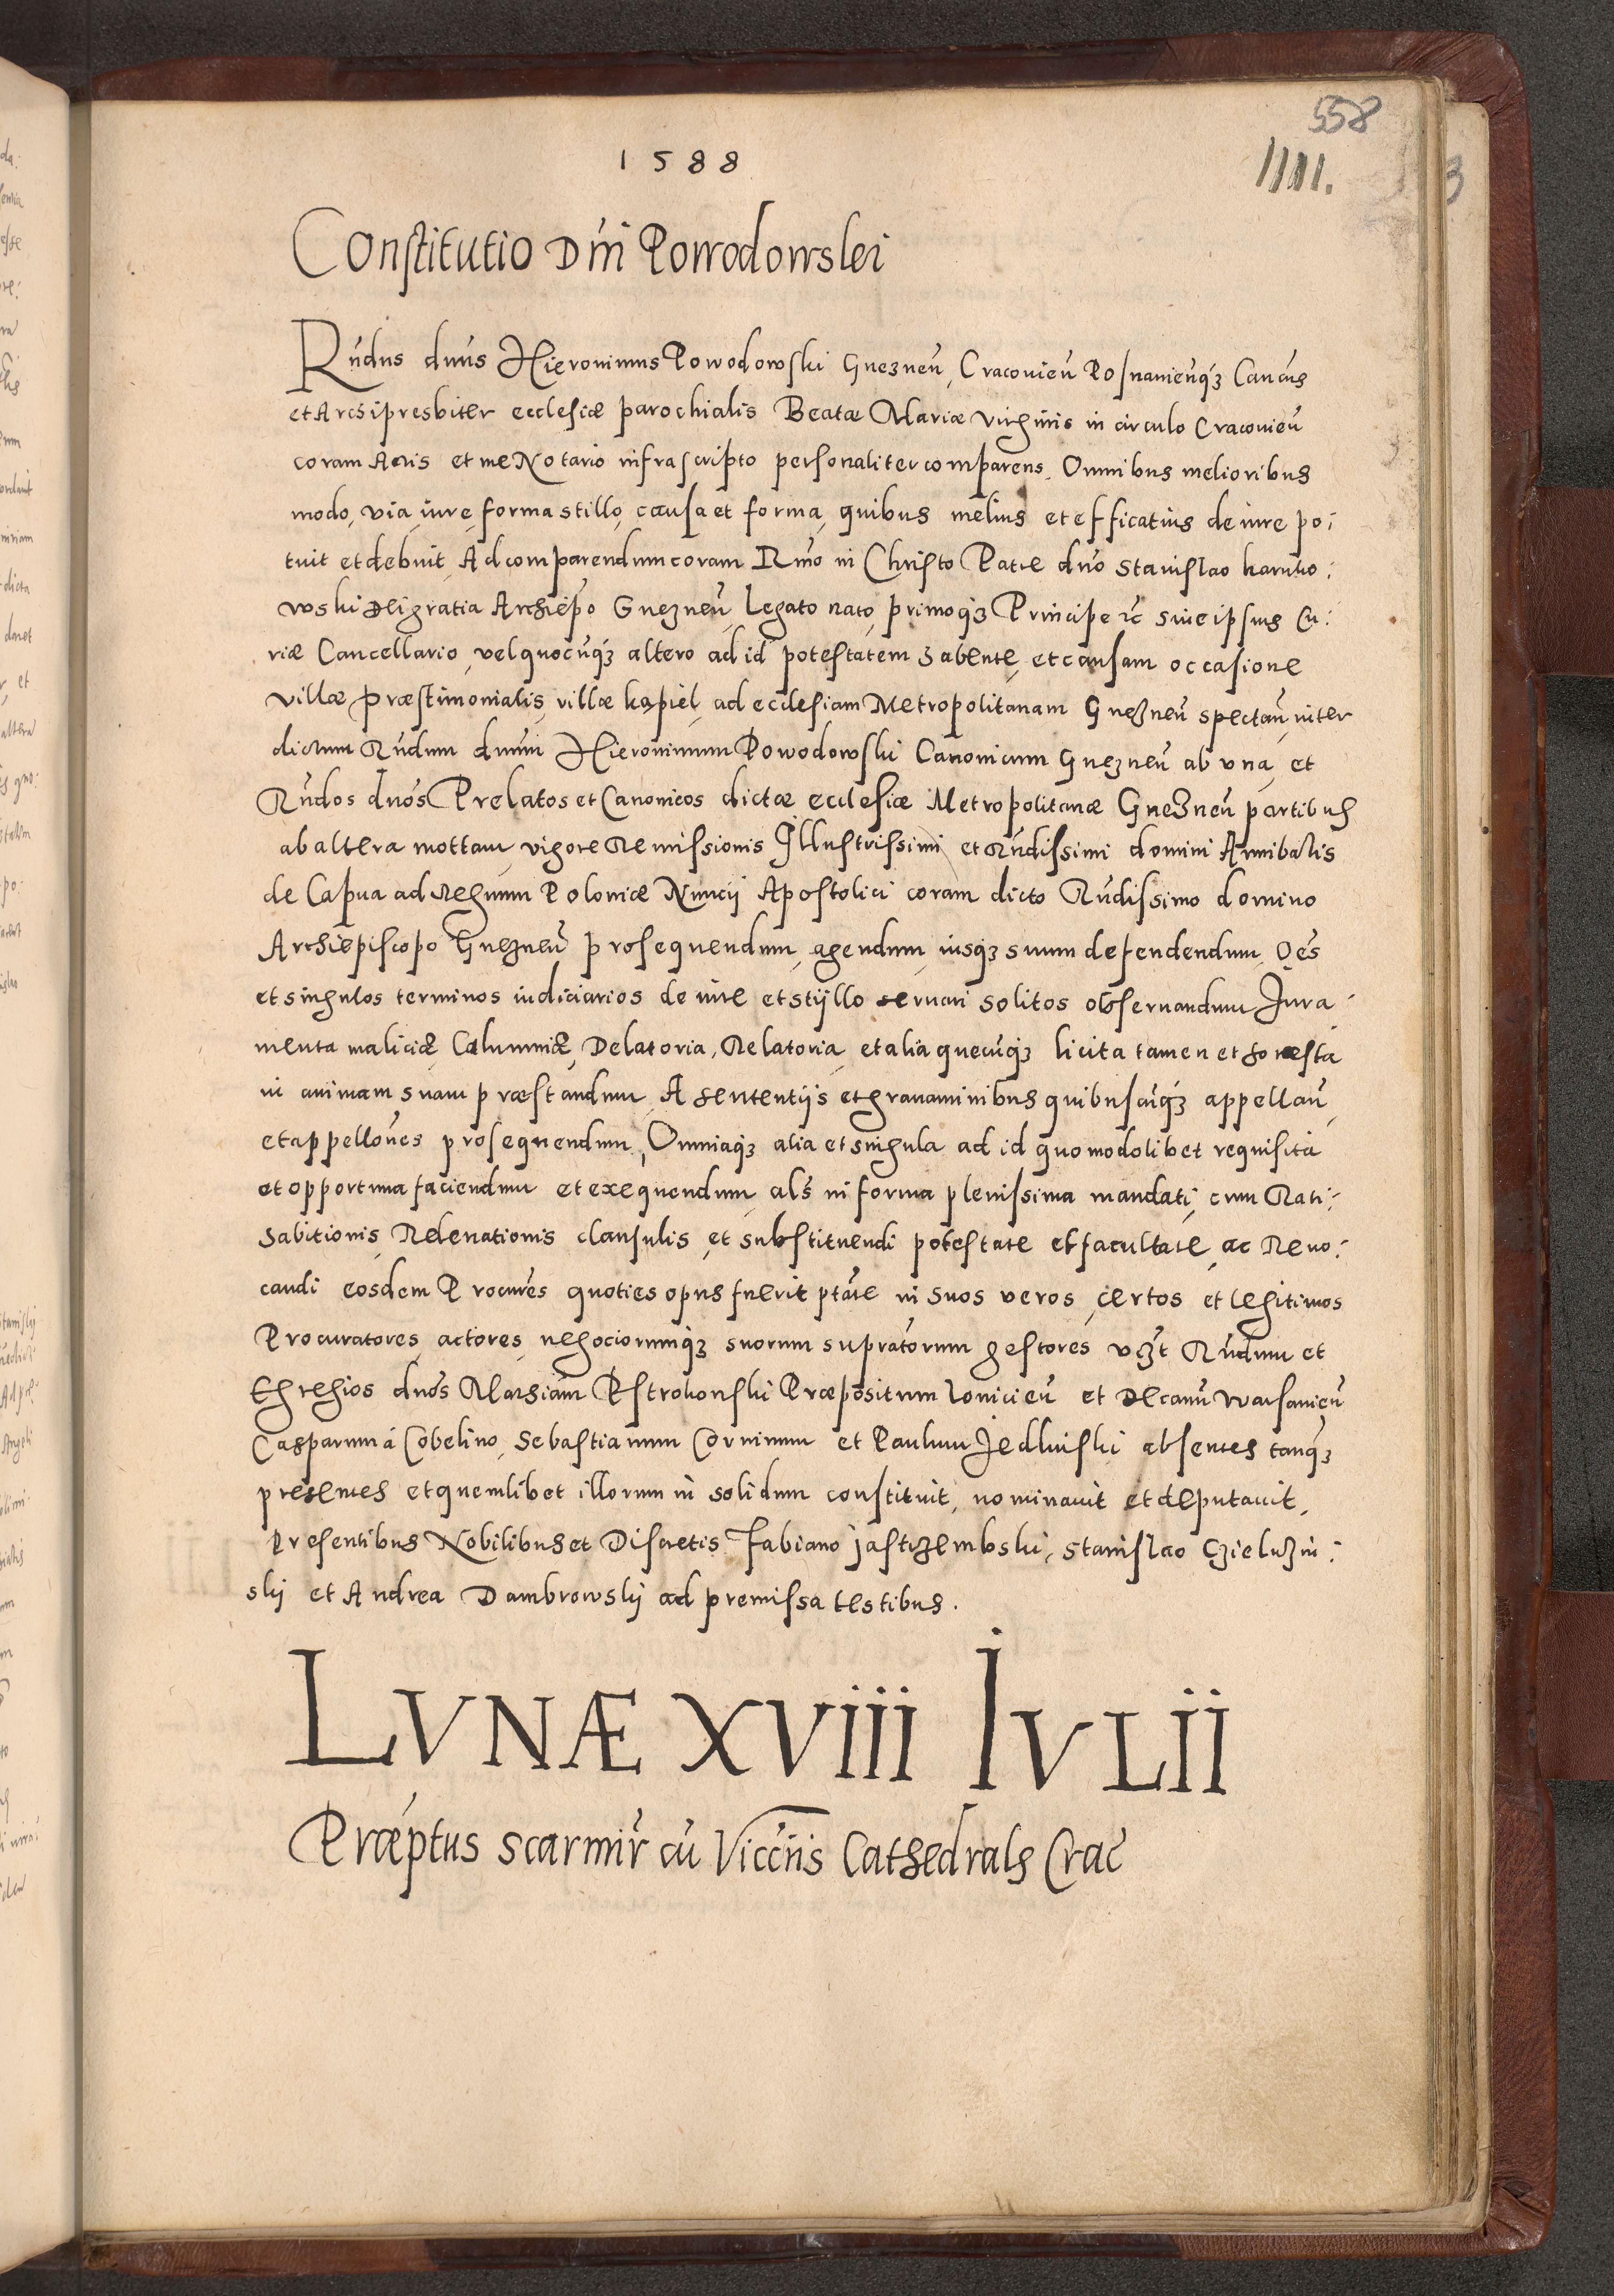 558
1588
1111.
Constitutio Dńi Powodowskі
Rńdus dnús Hieronimus Powodowski Gnezneń, Cracovień Posnanienq́ʒ Canćus
et Archipresbiter ecclesiæ parochialis Beatæ Mariæ virginis in circulo Cracovień
coram Actis et me Notario infrascripto personaliter comparens. Omnibus melioribus
modo, via, iure, forma stillo, causa et forma, quibus melius et efficatius de iure po:
tuit et debuit, Ad comparendum coram Rmó in Christo Patre dnó Stanislao karnko:
wski Dei gratia Archiepo Gnezneń, Legato nato, primoqʒ Principe ꝛc siue ipsius Cu:
riæ Cancellario, vel quocúqʒ altero ad id potestatem habente, et causam occasione
villæ præstimonialis, villæ kąpiel, ad ecclesiam Metropolitanam Gnezneń spectań, inter
dictum Rńdum dnum Hieronimum Powodowski Canonicum Gnezneń ab vna, et
Rńdos dnós Prelatos et Canonicos dictæ ecclesiæ Metropolitanæ Gnezneń partibus
ab altera mottam, vigore Remissionis Illustrissimi et Rńdissimi domini Annibalis
de Capua ad Regnum Poloniæ Nuncij Apostolici coram dicto Rńdissimo domino
Archiepiscopo Gnezneń prosequendum, agendum, iusqʒ suum defendendum, Oés
et singulos terminos iudiciarios de iure et stijllo seruari solitos obseruandum Jura:
menta maliciæ, Calumniæ, Delatoria, Relatoria, et alia quecúqʒ licita tamen et honesta
in animam suam præstandum, A sententijs et grauaminibus quibuscúqʒ appellań,
et appellónes prosequendum, Omniaqʒ alia et singula ad id quomodolibet requisita
et opportuna faciendum et exequendum, alś in forma plenissima mandati, cum Rati:
habitionis, Releuationis clausulis, et substituendi potestate et facultate, ac Reuo:
candi eosdem Procurés quoties opus fuerit ptáte in suos veros, certos et legitimos
Procuratores, actores, negociorumqʒ suorum supratórum gestores vczt Rńdum et
Egregios dnós Mathiam Pstrokonski Præpositum Lovicień et Decanú Warsauień
Casparum á Cobelino, Sebastianum Corninum et Paulum Jedlinski absentes tanqʒ
presentes et quemlibet illorum in solidum constituit, nominauit et deputauit,
Presentibus Nobilibus et Discretis Fabiano jastrzembski, Stanislao Czieluzni:
skij et Andrea Dambrowskij ad premissa testibus.
LVNÆ XVIII IVLII
Præptus scarmir cú Viccrns Cathedrals Crac